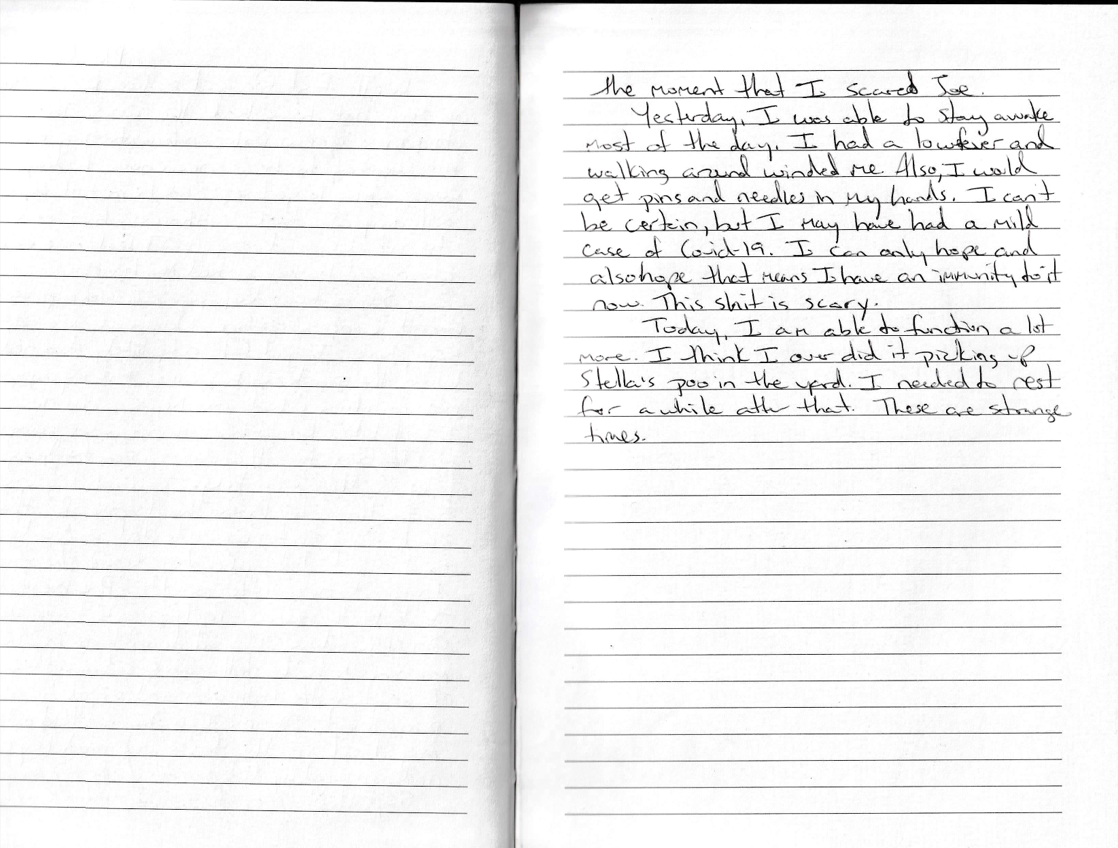 the moment that I scared Joe.
Yesterday, I was able to stay awake
most of the day. I had a low fever and
walking around winded me. Also, I would
get pins and needles in my hands. I can't
be certain, but I may have had a mild
case of Covid-19. I can only hope and
also hope that means I have an immunity to it
now. This shit is scary.
Today, I am able to function a lot
more. I think I over did it picking up
Stella's poo in the yard. I needed to rest
for a while after that. These are strange
times.